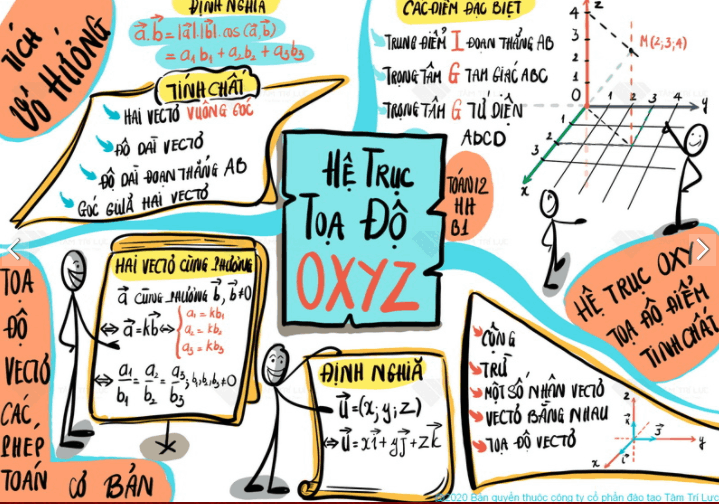 TÍCH
VÔ HƯỚNG
ĐỊNH NGHĨA
a⃗.b⃗ = |a⃗|.|b⃗|.cos (a⃗,b⃗)
= a₁b₁ + a₂b₂ + a₃b₃
TÍNH CHẤT
HAI VECTƠ VUÔNG GÓC
ĐỘ DÀI VECTƠ
ĐỘ DÀI ĐOẠN THẲNG AB
GÓC GIỮA HAI VECTƠ
CÁC ĐIỂM ĐẶC BIỆT
TRUNG ĐIỂM I ĐOẠN THẲNG AB
TRỌNG TÂM G TAM GIÁC ABC
TRỌNG TÂM G TỨ DIỆN
ABCD
z
4
3
2
1
0
M (2;3;4)
1 2 3 4 y
1
2
3
x
HỆ TRỤC
TỌA ĐỘ
OXYZ
TOÁN 12
HH
B1
HỆ TRỤC OXY
TỌA ĐỘ ĐIỂM
TÍNH CHẤT
TỌA
ĐỘ
VECTƠ
CÁC
PHÉP
TOÁN CƠ BẢN
HAI VECTƠ CÙNG PHƯƠNG
a⃗ CÙNG PHƯƠNG b⃗, b⃗≠0
⇔ a⃗ = kb⃗ ⇔ { a₁ = kb₁
a₂ = kb₂
a₃ = kb₃
⇔ a₁/b₁ = a₂/b₂ = a₃/b₃; b₁,b₂,b₃≠0
ĐỊNH NGHĨA
u⃗ = (x; y; z)
⇔ u⃗ = xi⃗ + yj⃗ + zk⃗
CỘNG
TRỪ
MỘT SỐ NHÂN VECTƠ
VECTƠ BẰNG NHAU
TỌA ĐỘ VECTƠ
z
k⃗
j⃗
y
i⃗
x
©2020 Bản quyền thuộc công ty cổ phần đào tạo Tâm Trí Lực